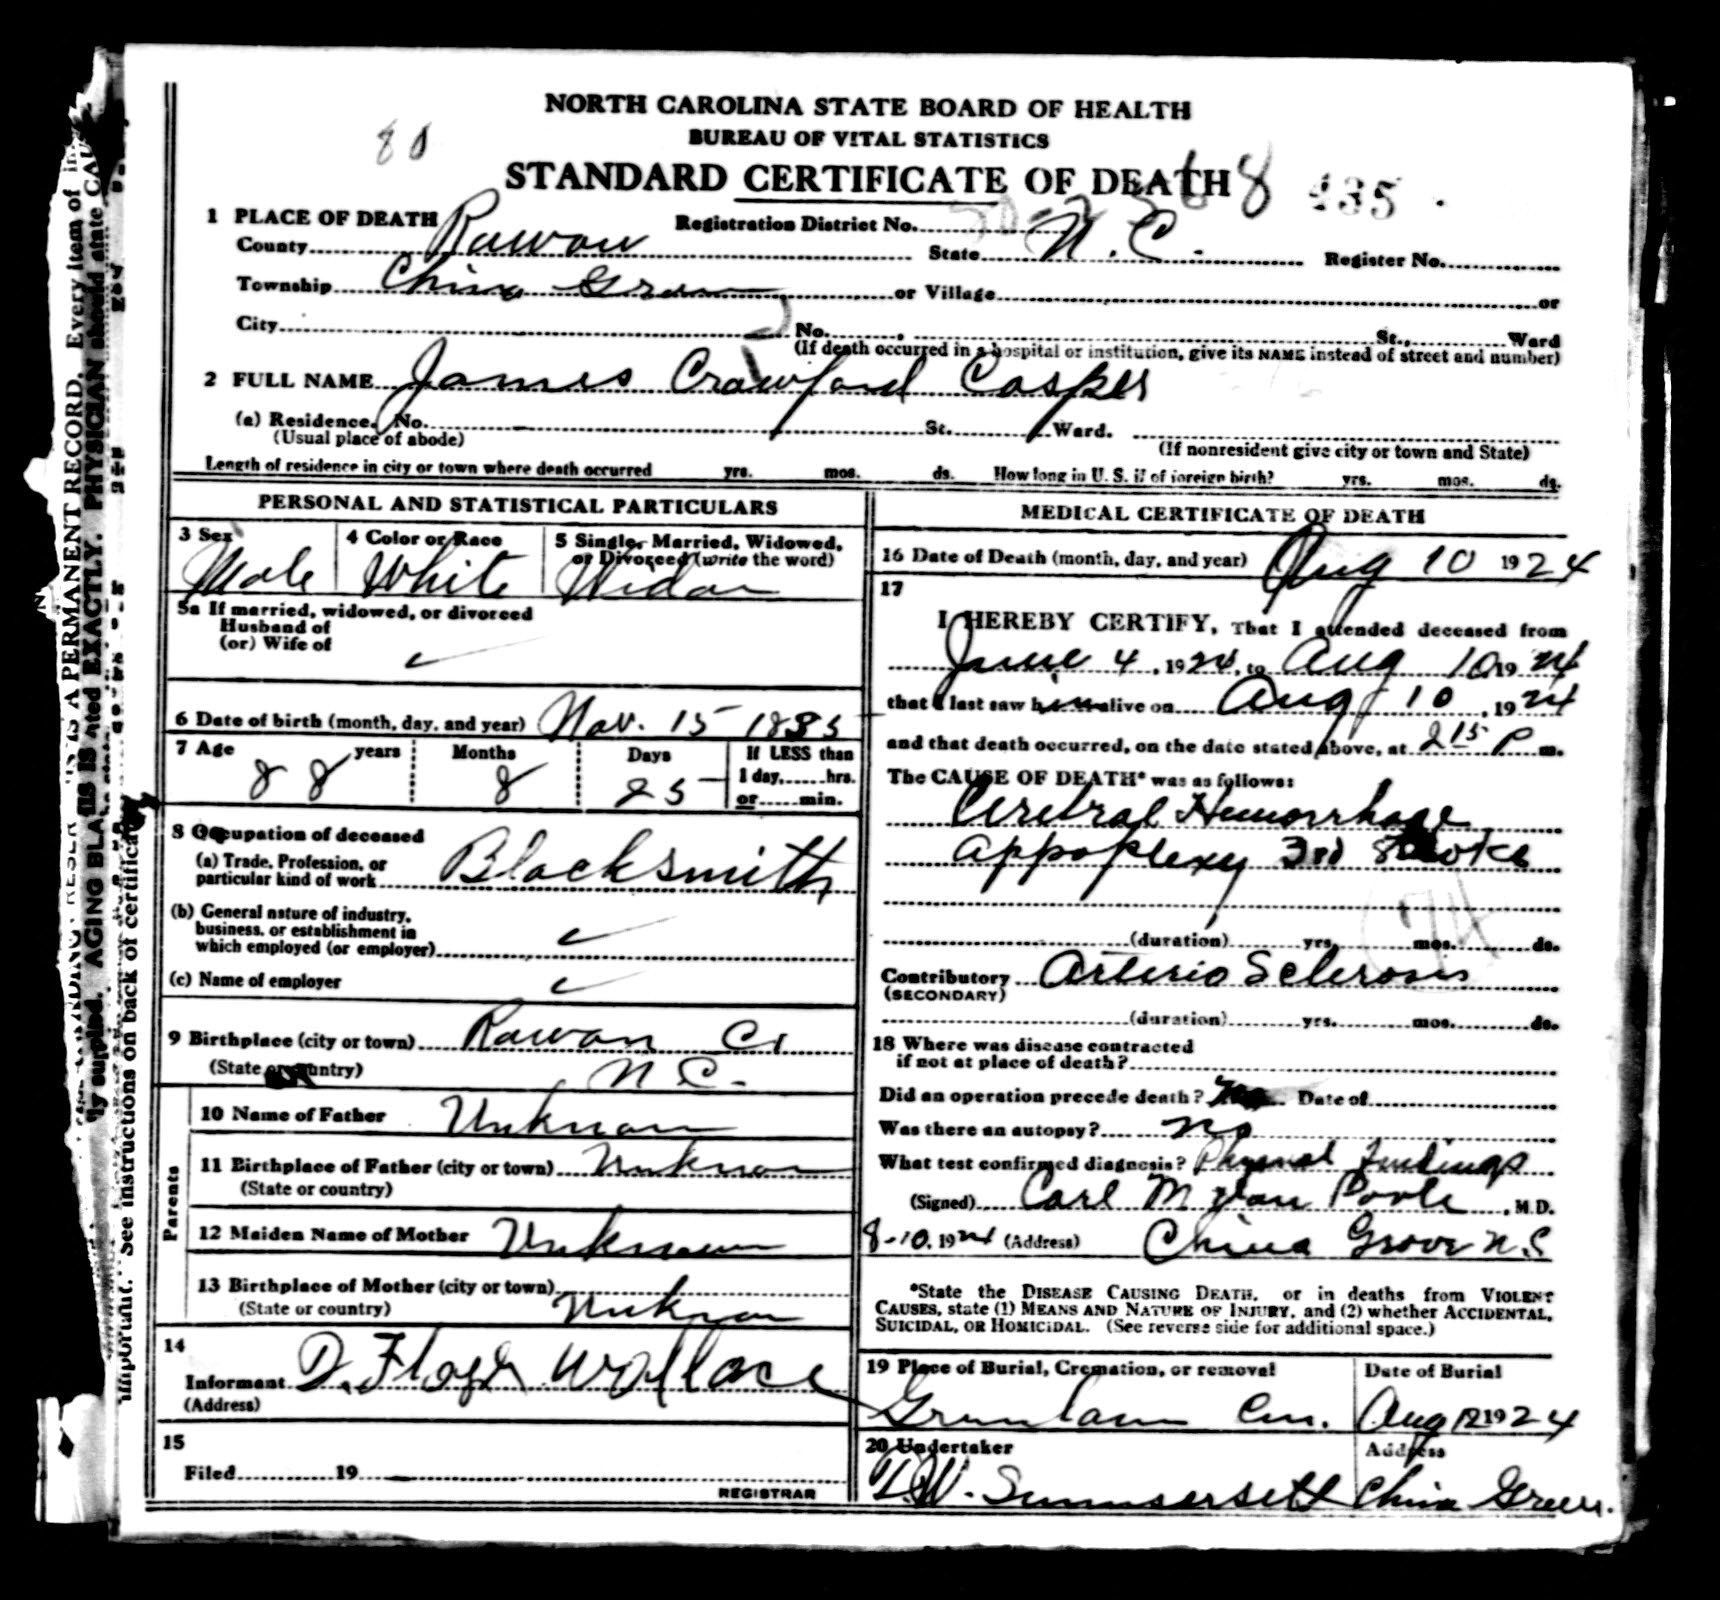 NORTH CAROLINA STATE BOARD OF HEALTH
BUREAU OF VITAL STATISTICS
80
STANDARD CERTIFICATE OF DEATH 8 435
1 PLACE OF DEATH Registration District No.
County Rowan State N. C. Register No.
Township China Grove or Village or
City No. St., Ward
(If death occurred in a hospital or institution, give its NAME instead of street and number)
2 FULL NAME James Crawford Casper
(a) Residence. No. St. Ward.
(Usual place of abode) (If nonresident give city or town and State)
Length of residence in city or town where death occurred yrs. mos. ds. How long in U. S. if of foreign birth? yrs. mos. ds.
PERSONAL AND STATISTICAL PARTICULARS
3 Sex 4 Color or Race 5 Single, Married, Widowed,
or Divorced (write the word)
Male White Widow
5a If married, widowed, or divorced
Husband of
(or) Wife of
6 Date of birth (month, day, and year) Nov. 15 1835
7 Age years Months Days If LESS than
88 8 25 1 day, hrs.
or min.
8 Occupation of deceased
(a) Trade, Profession, or
particular kind of work Blacksmith
(b) General nature of industry,
business, or establishment in
which employed (or employer)
(c) Name of employer
9 Birthplace (city or town) Rowan Co
(State or country) N C.
Parents
10 Name of Father Unknown
11 Birthplace of Father (city or town) Unknown
(State or country)
12 Maiden Name of Mother Unknown
13 Birthplace of Mother (city or town)
(State or country) Unknown
14
Informant D. Floyd Wallace
(Address)
15
Filed 19
REGISTRAR
MEDICAL CERTIFICATE OF DEATH
16 Date of Death (month, day, and year) Aug 10 1924
17
I HEREBY CERTIFY, That I attended deceased from
June 4, 1924, to Aug 10 1924
that I last saw him alive on Aug 10, 1924
and that death occurred, on the date stated above, at 2 15 P m.
The CAUSE OF DEATH* was as follows:
Cerebral Hemorrhage
Appoplexy 3rd stroke
(duration) yrs. mos. ds.
Contributory Arterio Sclerosis
(SECONDARY)
(duration) yrs. mos. ds.
18 Where was disease contracted
if not at place of death?
Did an operation precede death? No Date of
Was there an autopsy? no
What test confirmed diagnosis? Physical Findings
(Signed) Carl M Van Poole, M.D.
8-10, 1924 (Address) China Grove N.C
*State the DISEASE CAUSING DEATH, or in deaths from VIOLENT
CAUSES, state (1) MEANS AND NATURE OF INJURY, and (2) whether ACCIDENTAL,
SUICIDAL, OR HOMICIDAL. (See reverse side for additional space.)
19 Place of Burial, Cremation, or removal Date of Burial
Greenlawn Cem. Aug 12 1924
20 Undertaker Address
W. Summersett China Grove.